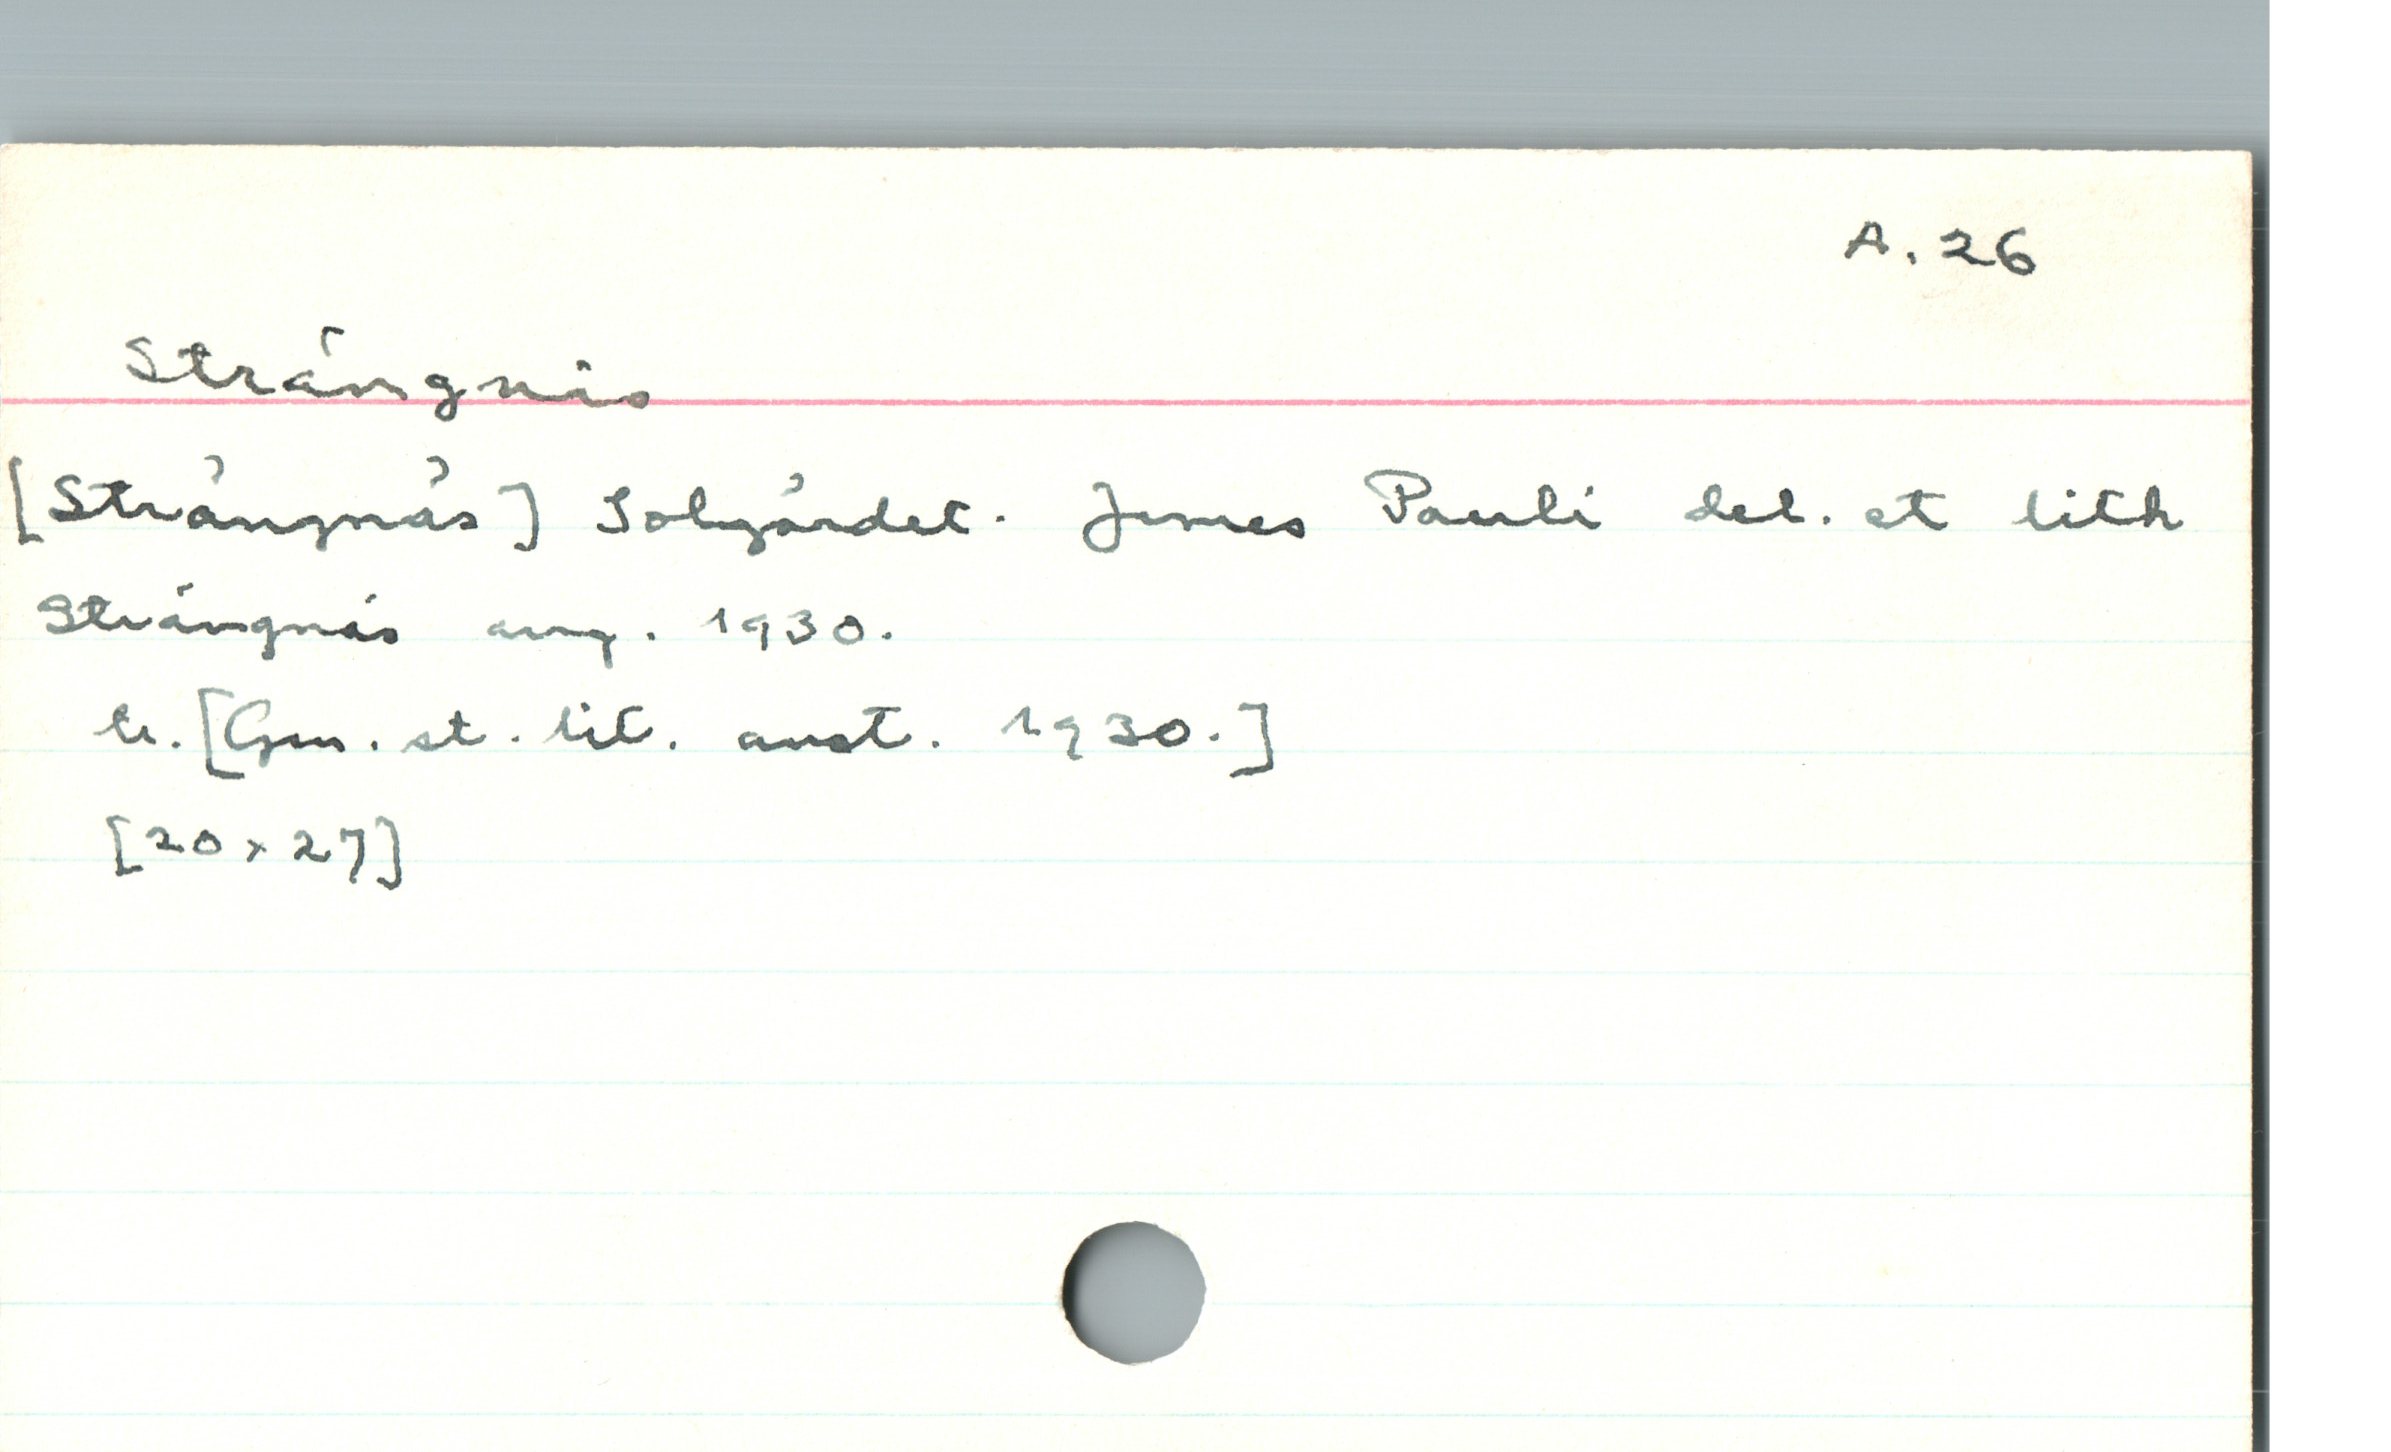 A. 26
Strängnäs
[Strängnäs] Solgårdet. James Pauli del. et lith
Strängnäs aug. 1930.
[Gen. st. lit. anst. 1930.]
[20 x 27]